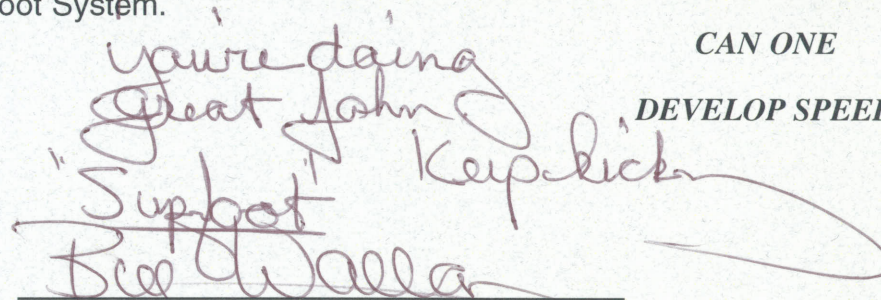 oot System.
CAN ONE
DEVELOP SPEED
you're doing
great John
Keep kickin
"Superfoot"
Bill Wallace